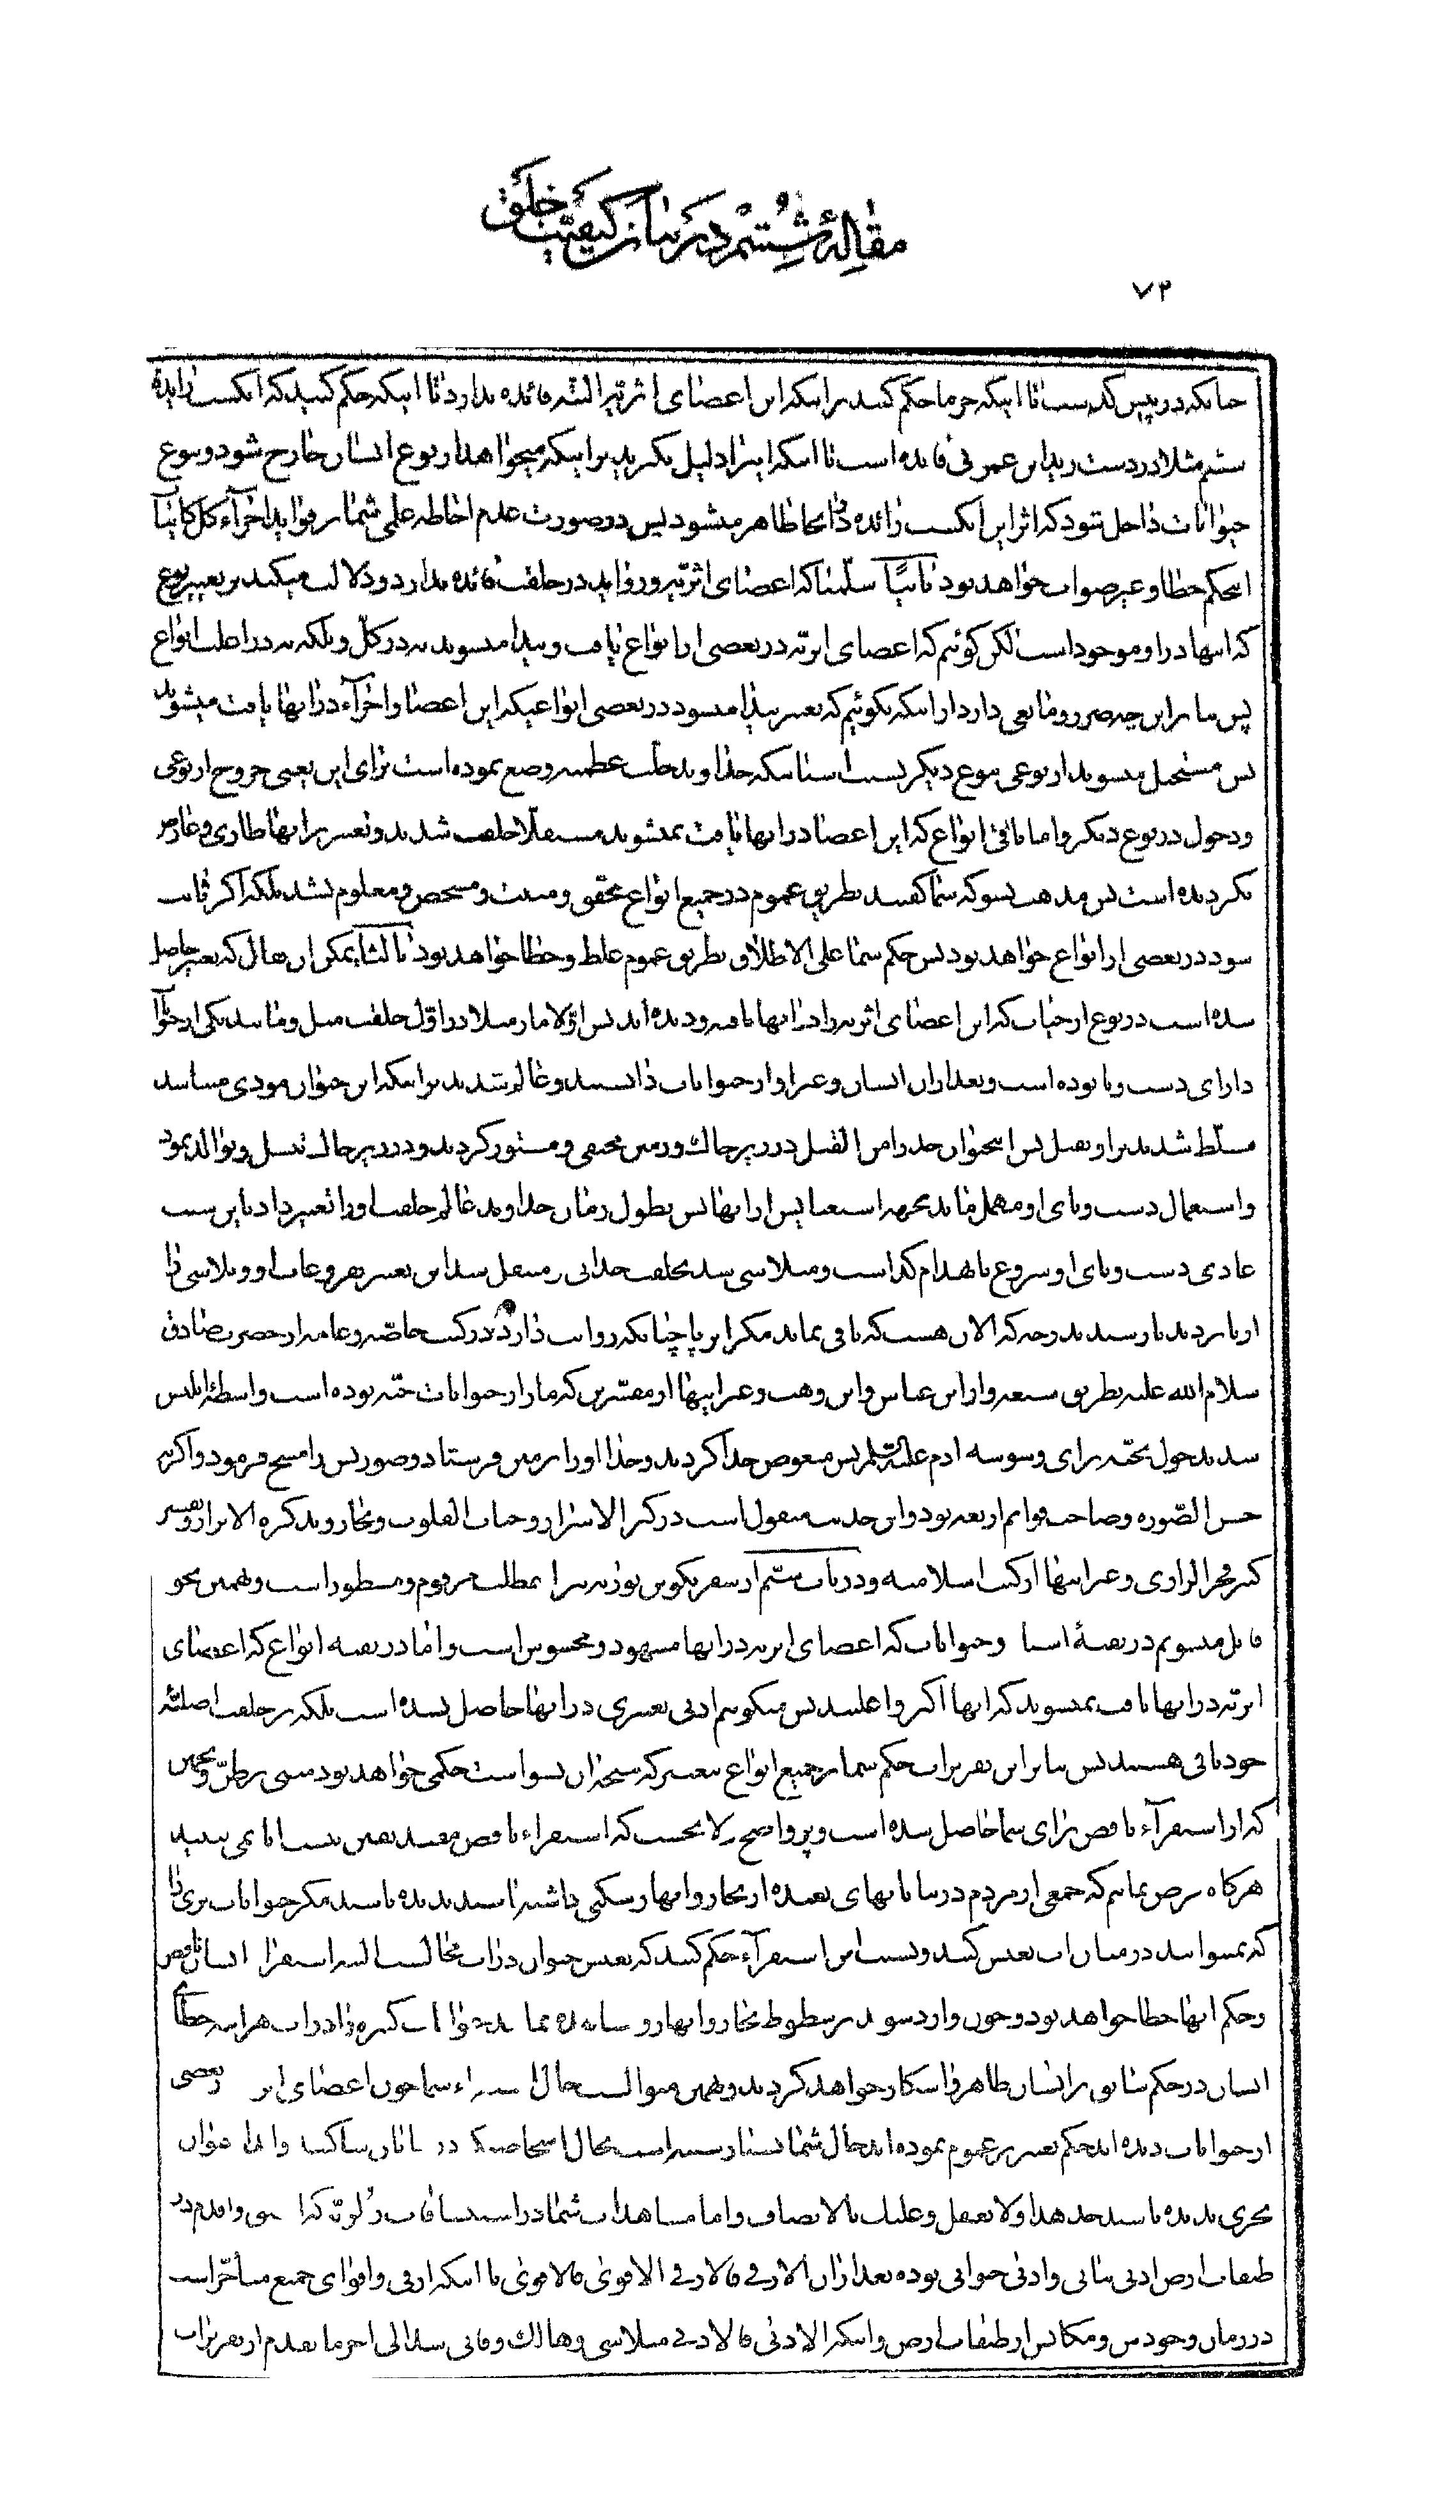 مقاله ششم در بیان کیفیت خلق
۷۲
چنانکه در پیش گذشت تا اینکه جزما حکم کنید بر اینکه این اعضای اثریه البته فائده ندارد تا اینکه حکم کنید که انگشت زایده
ششم مثلا در دست زید ابن عمر بی فایده است تا اینکه اینرا دلیل بگیرید بر اینکه میخواهد از نوع انسان خارج شود و بنوع
حیوانات داخل شود که اثر این انگشت زائده در آنجا ظاهر میشود پس در صورت عدم احاطه علمی شما بر فواید اجزاء کل کاینات
اینحکم خطا و غیر صواب خواهد بود ثانیاً سلّمنا که اعضای اثریه و زواید در خلقت فائده ندارد و دلالت میکند بر تغییر نوع
که اینها در او موجود است لکن گوئیم که اعضای اثریه در بعضی از انواع یافت و پیدا میشوند نه در کلّ و بلکه نه در اغلب انواع
پس بنا بر این چه ضرر و مانعی دارد از اینکه بگوئیم که تغییر پیدا میشود در بعضی انواعیکه این اعضا و اجزآء در آنها یافت میشوند
پس مستحیل میشوند از نوعی بنوع دیگر بسبب اسبابیکه خداوند جلّت عظمته وضع نموده است برای این یعنی خروج از نوعی
و دخول در نوع دیگر و اما باقی انواع که این اعضا در آنها یافت نمیشوند مستقلّا خلقت شدند و تغییر بر آنها طاری و عارض
نگردیده است پس مذهب نشو که شما گفتید بطریق عموم در جمیع انواع محقق و مثبت و مشخص و معلوم نشد بلکه اگر ثابت
شود در بعضی از انواع خواهد بود پس حکم شما علی الاطلاق و بطریق عموم غلط و خطا خواهد بود ثالثاً ممکن است که تغییر حاصل
شده است در نوع از حیات که این اعضای اثریه را در آنها یافته و دیده اند پس اوّلا مار مثلا در اوّل خلقت مثل و مانند یکی از حیوانات
دارای دست و پا بوده است و بعد از آن انسان و غیر او از حیوانات دانستند و عالم شدند بر اینکه این حیوان موذی میباشد
مسلّط شدند بر او بقتل پس اینحیوان حذرا من القتل در زیر خاک و زمین مخفی و مستور گردید و در زیر خاک تنسل و توالد نمود
و استعمال دست و پای او مهمل ماند بجهة استغنایش از آنها پس بطول زمان خداوند عالم خلقت او را تغییر داد باین سبب
عادی دست و پای او شروع بانهدام گذاشت و متلاشی شد
او تا بردید تا رسید بدرجه که الان هست که باقی نماند مگر این پا چنانکه روایت دارد در کتب خاصّه و عامه از حضرت صادق
سلام الله علیه بطریق شیعه و از ابن عباس و ابن وهب و غیر اینها از مفسّرین که مار از حیوانات جنّه بوده است و واسطهٔ ابلیس
شد بدخول بجنّه برای وسوسه ادم علیه السلام پس مبغوض خدا گردید و خدا او را بزمین فرستاد و صورتش را مسخ فرمود و اگر نه
حسن الصّوره و صاحب قوائم اربعه بود و این حدیث منقول است در کنز الاسرار و حیات القلوب و بحار و تذکره الابرار و تفسیر
کبیر فخر الرازی و غیر اینها از کتب اسلامیه و در باب سیّم از سفر تکوین توریه نیز این مطلب مرقوم و مسطور است و بهمین نحو
قایل میشویم در بقیهٔ اشیا و حیوانات که اعضای اثریه در آنها مشهود و محسوس است و اما در بقیه انواع که اعضای
اثریه در آنها یافت نمیشوند که آنها اکثر و اغلبند پس میگوئیم ادنی تغییری در آنها حاصل نشده است بلکه بر خلقت اصلیّه
خود باقی هستند پس بنا بر این تقریرات حکم شما بر جمیع انواع بتغییر که نتیجه آن نشو است حکمی خواهد بود مبنی بر ظنّ و تخمین
که از استقرآء ناقص برای شما حاصل شده است و پر واضح که استقراء ناقص مفید یقین نیست آیا نمی بینید
هر گاه فرض نمائیم که جمعی از مردم در بیابانهای بعیده از بحار و انهار سکنی داشته باشند ندیده باشند مگر حیوانات بری را
که نمیتوانند در میان آب تعیش کنند و بسبب این استقرآء حکم کنند که تعیش حیوان در آب محال است البته استقراء ایشان ناقص
و حکم آنها خطا خواهد بود و چون وارد شوند بر شطوط بحار و انهار و مشاهده نمایند حیوانات کثیره را در آب هر آینه خطای
ایشان در حکم سابق بر ایشان ظاهر و آشکار خواهد گردید و بهمین منوال است حال استقراء شما چون اعضای اثر بعضی
از حیوانات دیده اید حکم تغییر بر عموم نموده اید حال شما بسیار شبیه است بحال اشخاصیکه در بیابان ساکنند و ابدا حیوان
بحری ندیده باشند خذ هذا و لا تغفل و علیک بالانصاف و اما مشاهدات شما در
طبقات ارض ادنی نباتی و ادنی حیوانی بوده بعد از آن الارقی فالارقی الاقوی فالاقوی تا اینکه ارقی و اقوای جمیع متأخّر است
در زمان وجودش و مکانش از طبقات ارض و اینکه الادنی فالادنی متلاشی و هالک و فانی شد الی اخر ما تقدم از تقریرات